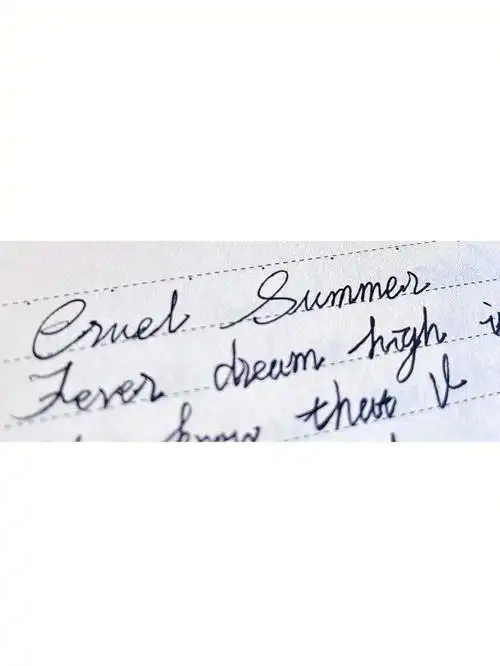 Cruel Summer
Fever dream high i
know that I